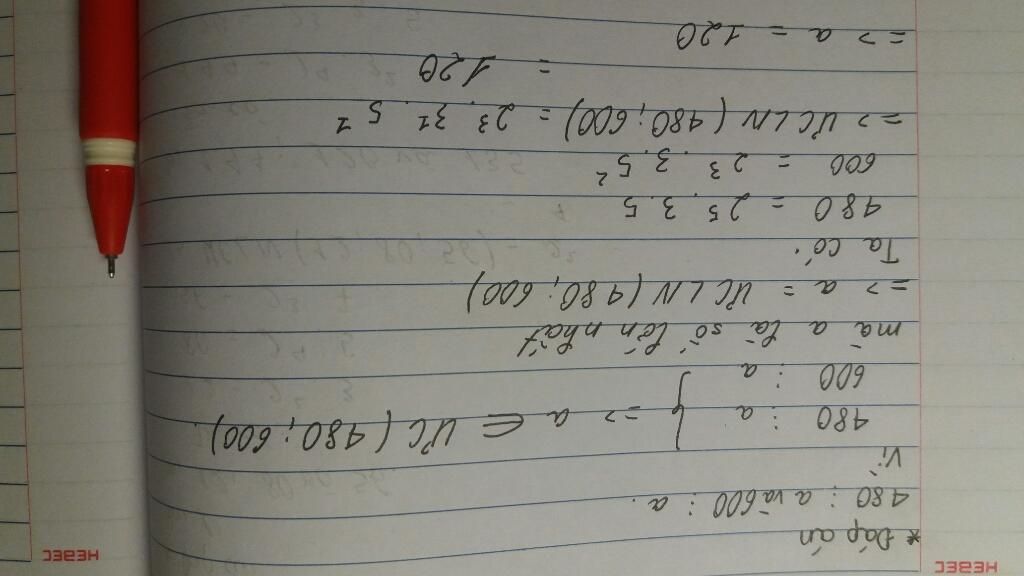 HEBEC
HEBEC
* Đáp án
480 ⋮ a và 600 ⋮ a.
Vì
480 ⋮ a
600 ⋮ a } => a ∈ ƯC (480; 600)
mà a là số lớn nhất
=> a = ƯCLN (480; 600)
Ta có:
480 = 2⁵. 3. 5
600 = 2³. 3. 5²
=> ƯCLN (480; 600) = 2³. 3¹. 5¹
= 120
=> a = 120